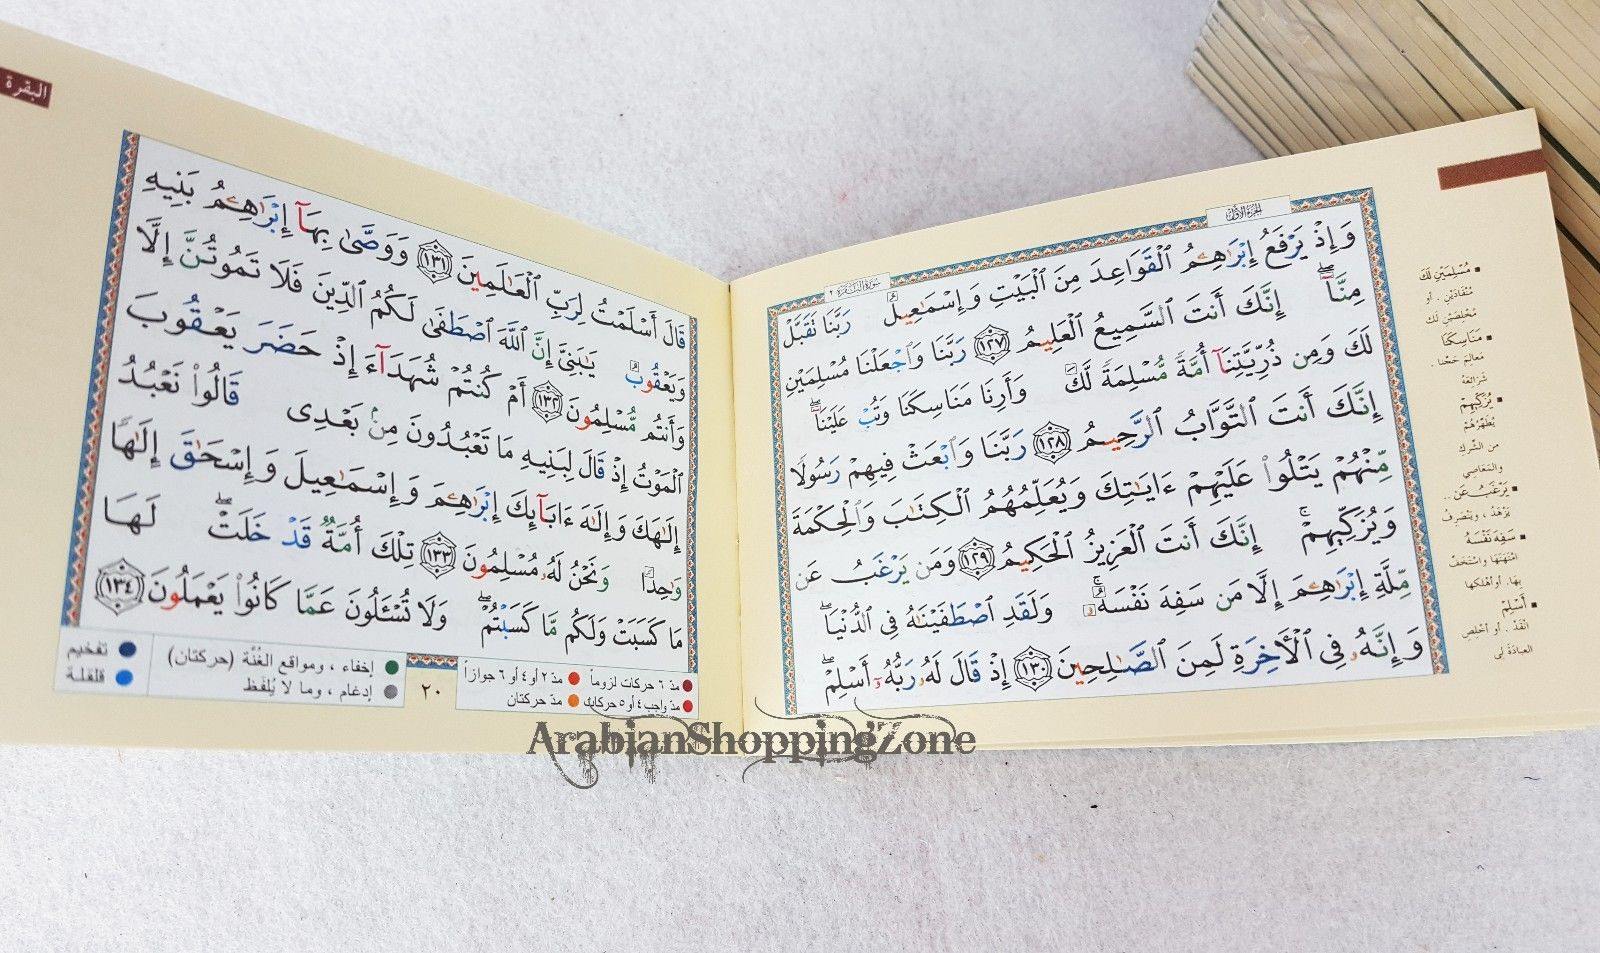 الجزء الأول
سورة البقرة ٢
وَإِذْ يَرْفَعُ إِبْرَٰهِـۧمُ ٱلْقَوَاعِدَ مِنَ ٱلْبَيْتِ وَإِسْمَـٰعِيلُ رَبَّنَا تَقَبَّلْ
مِنَّآ إِنَّكَ أَنتَ ٱلسَّمِيعُ ٱلْعَلِيمُ ١٢٧ رَبَّنَا وَٱجْعَلْنَا مُسْلِمَيْنِ
لَكَ وَمِن ذُرِّيَّتِنَآ أُمَّةً مُّسْلِمَةً لَّكَ وَأَرِنَا مَنَاسِكَنَا وَتُبْ عَلَيْنَآ
إِنَّكَ أَنتَ ٱلتَّوَّابُ ٱلرَّحِيمُ ١٢٨ رَبَّنَا وَٱبْعَثْ فِيهِمْ رَسُولًا
مِّنْهُمْ يَتْلُوا۟ عَلَيْهِمْ ءَايَـٰتِكَ وَيُعَلِّمُهُمُ ٱلْكِتَـٰبَ وَٱلْحِكْمَةَ
وَيُزَكِّيهِمْ إِنَّكَ أَنتَ ٱلْعَزِيزُ ٱلْحَكِيمُ ١٢٩ وَمَن يَرْغَبُ عَن
مِّلَّةِ إِبْرَٰهِـۧمَ إِلَّا مَن سَفِهَ نَفْسَهُۥ وَلَقَدِ ٱصْطَفَيْنَـٰهُ فِى ٱلدُّنْيَا
وَإِنَّهُۥ فِى ٱلْـَٔاخِرَةِ لَمِنَ ٱلصَّـٰلِحِينَ ١٣٠ إِذْ قَالَ لَهُۥ رَبُّهُۥٓ أَسْلِمْ
▪ مُسْلِمَيْنِ لَكَ
مُنْقَادَيْنِ . أو
مُخْلِصَيْنِ لَكَ
▪ مَنَاسِكَنَا
مَعَالِمَ حَجِّنا .
شَرَائِعَهُ
▪ يُزَكِّيهِمْ
يُطَهِّرُهُمْ
من الشِّركِ
والمَعَاصِي
▪ يَرْغَبُ عَن ..
يَزْهَدُ ، ويَنْصَرِفُ
▪ سَفِهَ نَفْسَهُ
امْتَهَنَهَا واسْتَخَفَّ
بِهَا. أو أهْلَكَها
▪ أَسْلِمْ
انْقَدْ . أو أخْلِصِ
العِبَادَةَ لِي
البقرة
قَالَ أَسْلَمْتُ لِرَبِّ ٱلْعَـٰلَمِينَ ١٣١ وَوَصَّىٰ بِهَآ إِبْرَٰهِـۧمُ بَنِيهِ
وَيَعْقُوبُ يَـٰبَنِىَّ إِنَّ ٱللَّهَ ٱصْطَفَىٰ لَكُمُ ٱلدِّينَ فَلَا تَمُوتُنَّ إِلَّا
وَأَنتُم مُّسْلِمُونَ ١٣٢ أَمْ كُنتُمْ شُهَدَآءَ إِذْ حَضَرَ يَعْقُوبَ
ٱلْمَوْتُ إِذْ قَالَ لِبَنِيهِ مَا تَعْبُدُونَ مِنۢ بَعْدِى قَالُوا۟ نَعْبُدُ
إِلَـٰهَكَ وَإِلَـٰهَ ءَابَآئِكَ إِبْرَٰهِـۧمَ وَإِسْمَـٰعِيلَ وَإِسْحَـٰقَ إِلَـٰهًا
وَٰحِدًا وَنَحْنُ لَهُۥ مُسْلِمُونَ ١٣٣ تِلْكَ أُمَّةٌ قَدْ خَلَتْ لَهَا
مَا كَسَبَتْ وَلَكُم مَّا كَسَبْتُمْ وَلَا تُسْـَٔلُونَ عَمَّا كَانُوا۟ يَعْمَلُونَ ١٣٤
مدّ ٦ حركات لزوماً
مدّ ٢ أو ٤ أو ٦ جوازاً
مدّ واجب ٤ أو ٥ حركات
مدّ حركتان
٢٠
إخفاء ، ومواقع الغُنَّة (حركتان)
إدغام ، وما لا يُلفَظ
تفخيم
قلقلة
ArabianShoppingZone